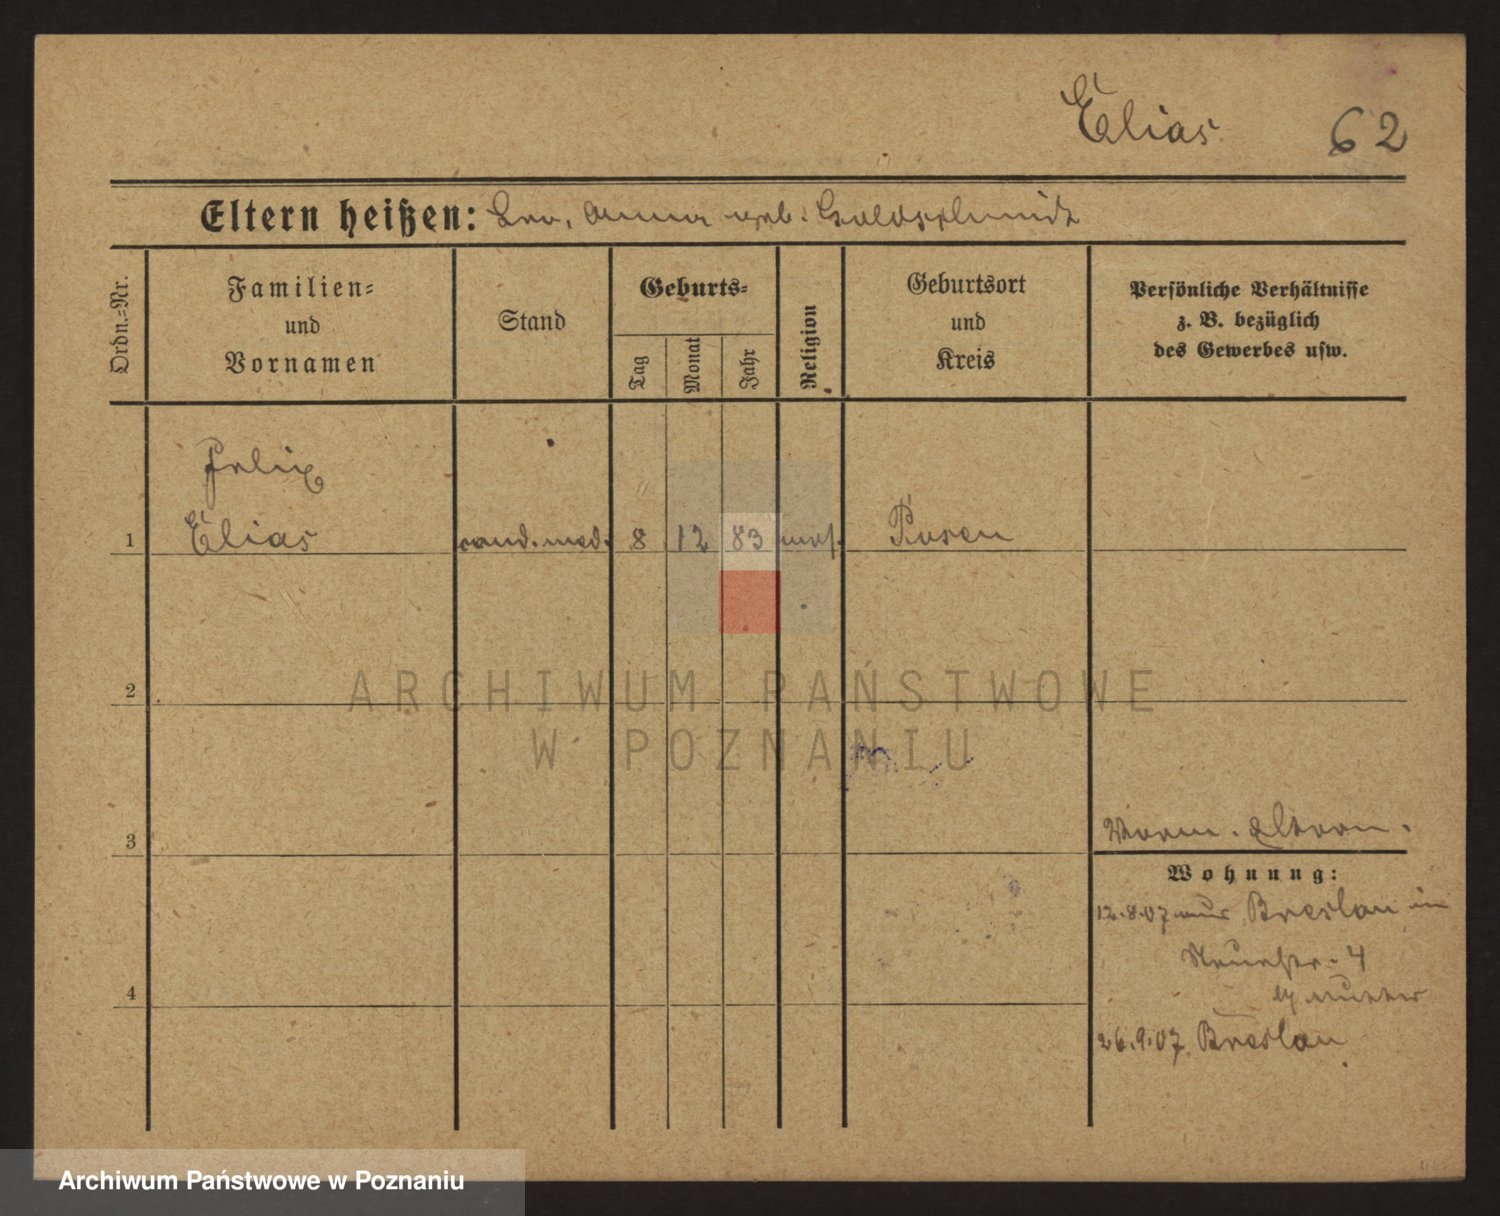 Elias 62
Eltern heißen: Leo, Anna geb. Goldschmidt
Ordn.=Nr.
Familien=
und
Vornamen
Stand
Geburts=
Tag
Monat
Jahr
Religion
Geburtsort
und
Kreis
Persönliche Verhältnisse
z. B. bezüglich
des Gewerbes usw.
Felix
1 Elias cand. med. 8 12 83 mos. Posen
2
3
Verm. Eltern.
Wohnung:
12.8.07 aus Breslau in
Neuestr. 4
b/ Mutter
4
26.9.07 Breslau
ARCHIWUM PAŃSTWOWE
W POZNANIU
Archiwum Państwowe w Poznaniu